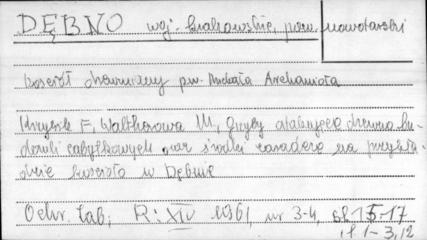 DĘBNO woj. krakowskie, pow. nowotarski
kościół drewniany pw. Michała Archanioła
Krzysik F., Waltherowa W., Grzyby atakujące drewno bu-
dowli zabytkowych oraz środki zaradcze na przykła-
dzie kościoła w Dębnie
Ochr. Zab., R: XIV 1961, nr 3-4, s. 15-17
il 1-3, 12